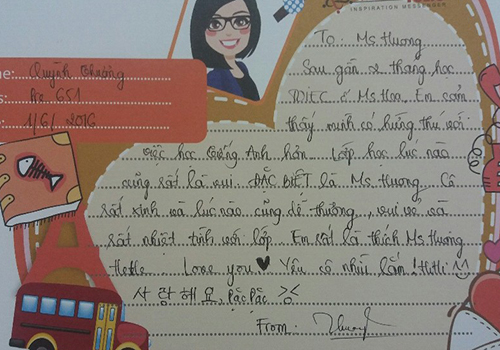 INSPIRATION MESSENGER
To: Ms. Hương
Sau gần 2 tháng học
TOEIC ở Ms Hoa. Em cảm
thấy mình có hứng thú với
việc học tiếng Anh hơn. Lớp học lúc nào
cũng rất là vui. ĐẶC BIỆT là Ms Hương. Cô
rất xinh và lúc nào cũng dễ thương, vui vẻ và
rất nhiệt tình với lớp. Em rất là thích Ms Hương
Hehe. Love you ♥ Yêu cô nhìu lắm! HiHi
사랑해요. Pặc Pặc
From:
me: Quỳnh Phương
s: Pre 651
1/6/2016